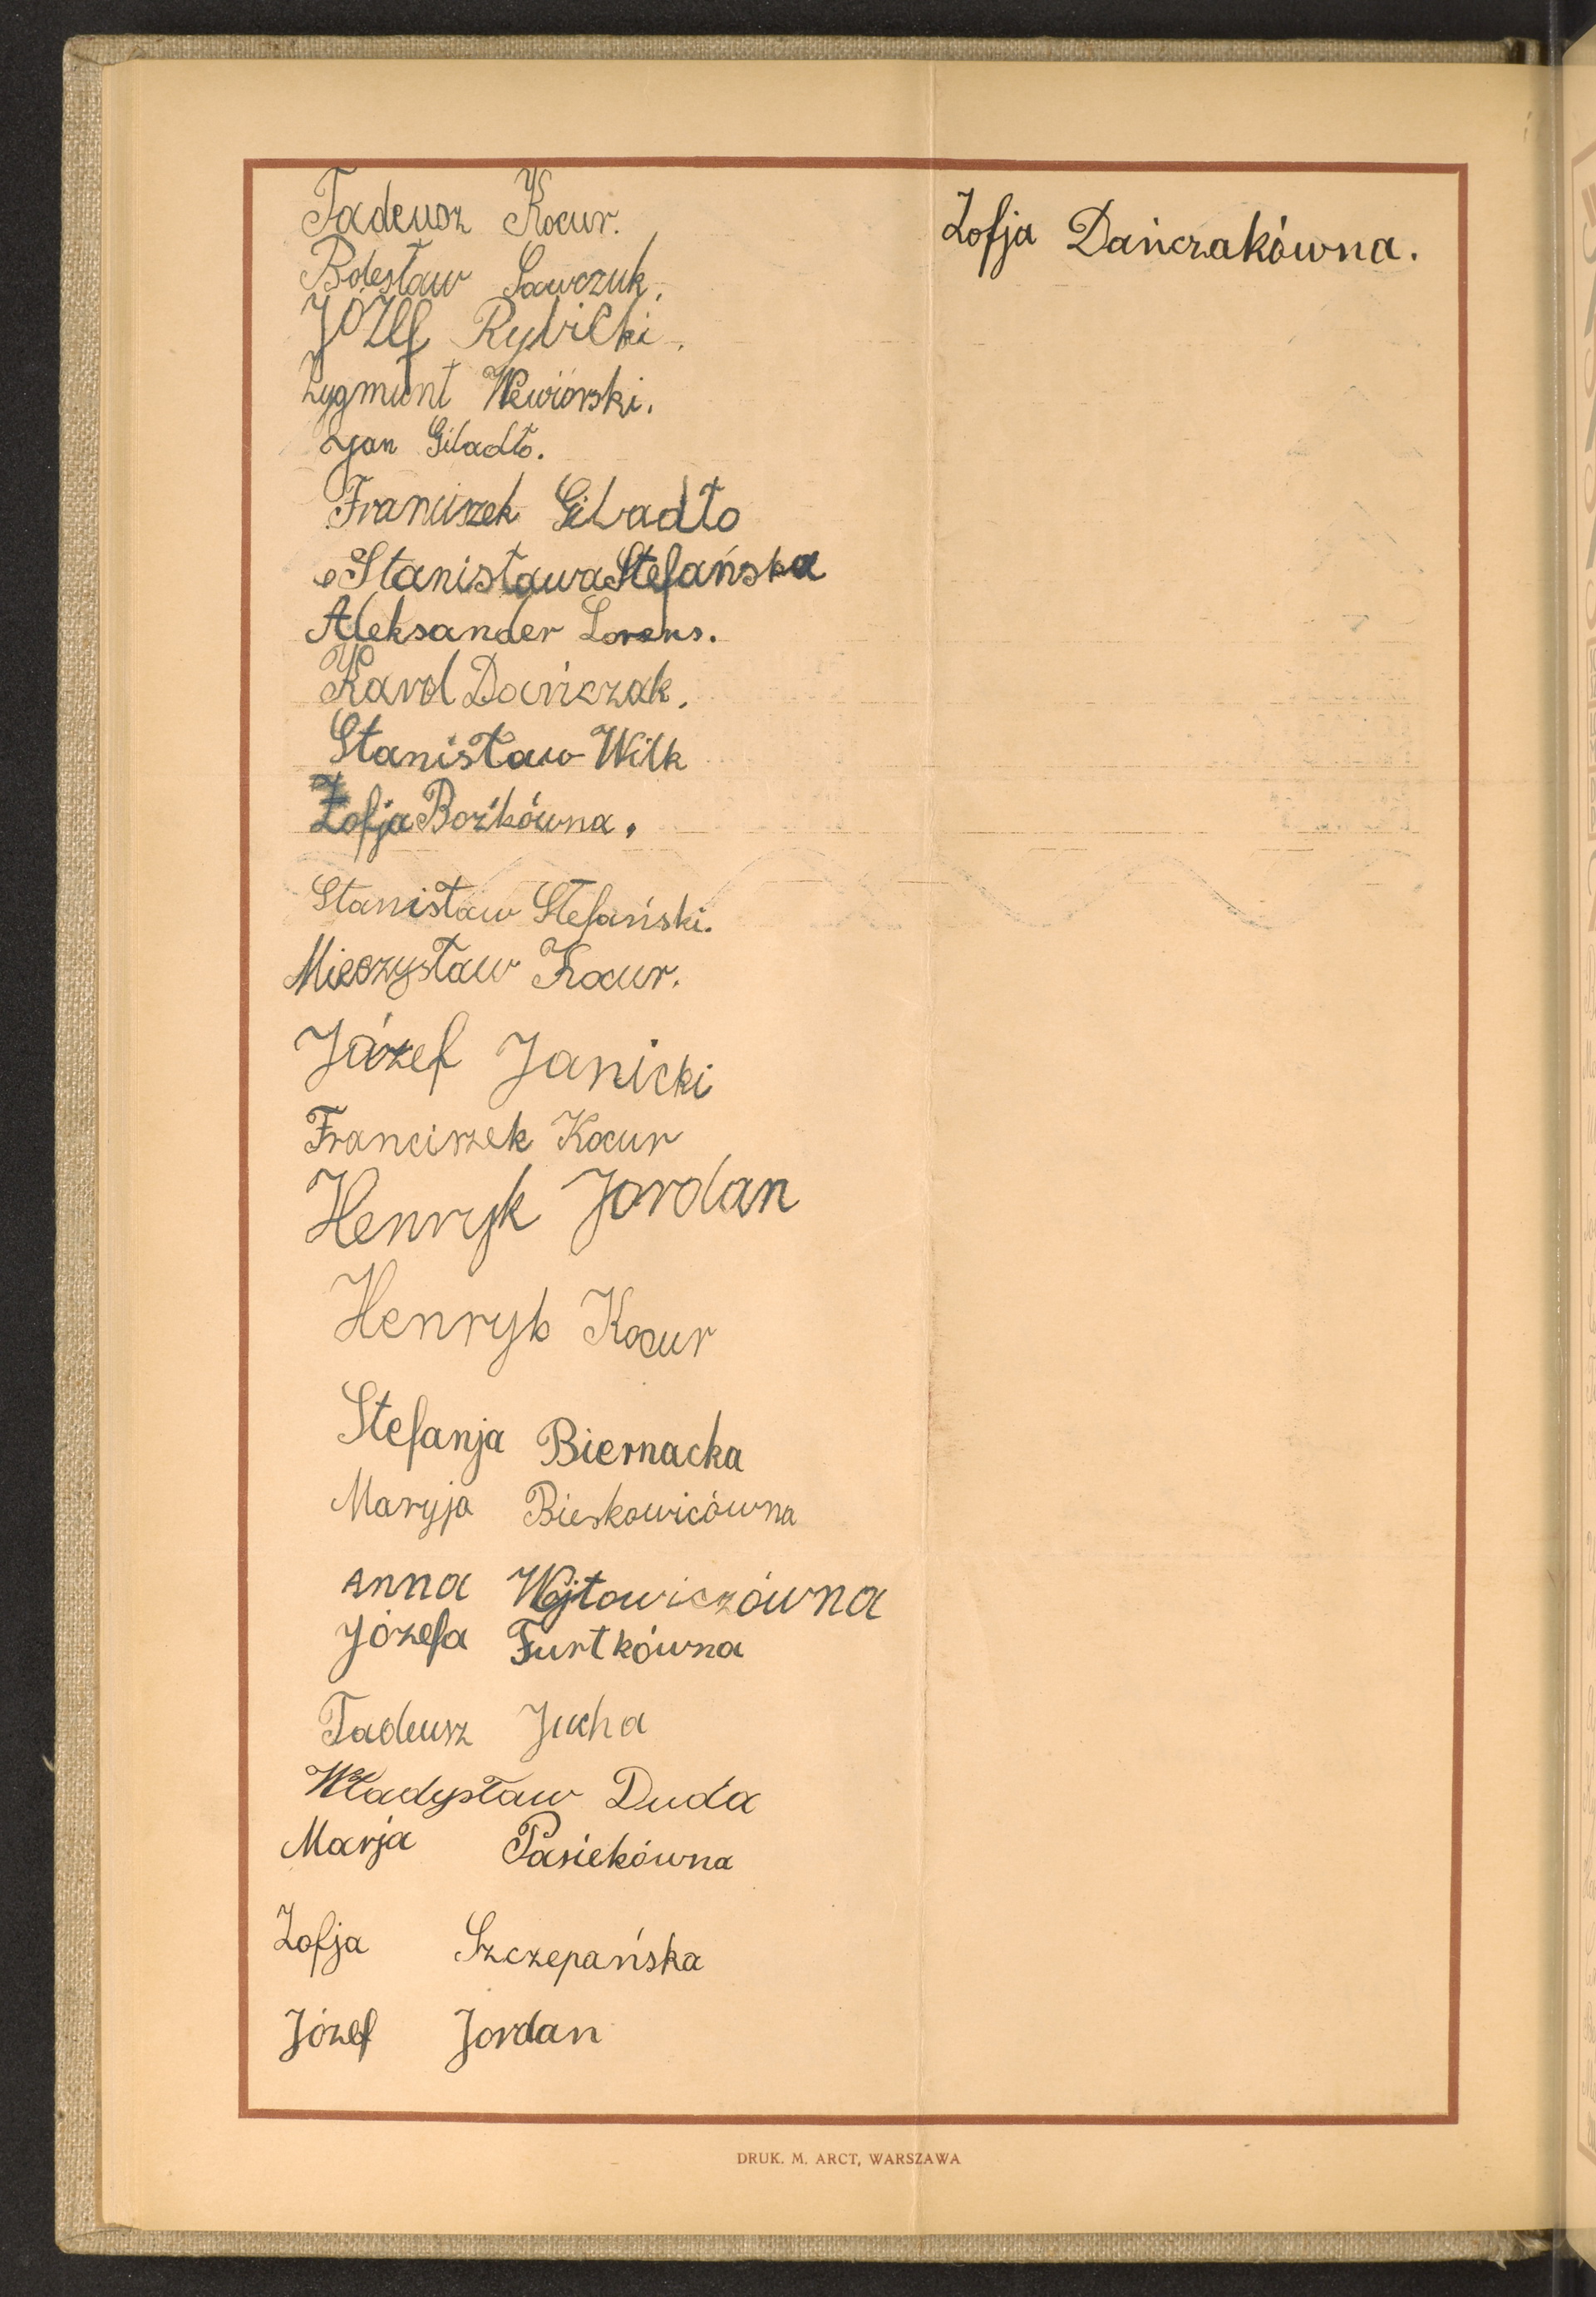 Tadeusz Kocur.
Bolesław Sawczuk.
Józef Rybicki.
Zygmunt Wewiórski.
Jan Giladło.
Franciszek Giladło
Stanisława Stefańska
Aleksander Lorens.
Karol Dańczak.
Stanisław Wilk
Zofja Boźkówna.
Stanisław Stefański.
Mieczysław Kocur.
Józef Janicki
Franciszek Kocur
Henryk Jordan
Henryk Kocur
Stefanja Biernacka
Maryja Bieskowicówna
Anna Wójtowiczówna
Józefa Furtkówna
Tadeusz Jucha
Władysław Duda
Marja Pasiekówna
Zofja Szczepańska
Józef Jordan
Zofja Dańczakówna.
DRUK. M. ARCT, WARSZAWA